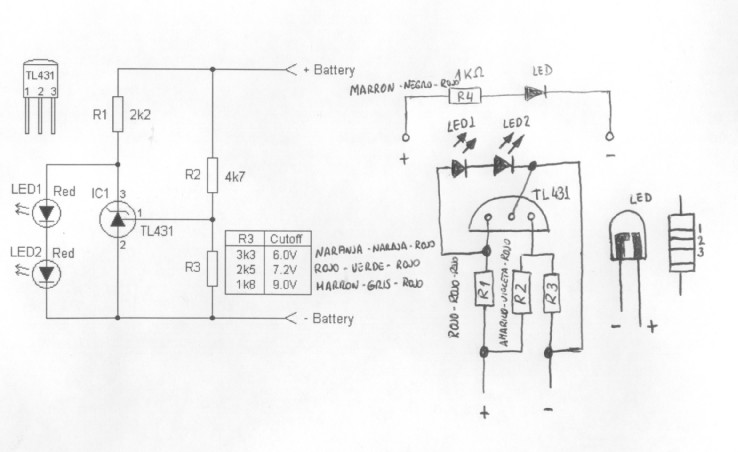 TL431
1 2 3
+ Battery
R1
2k2
R2
4k7
LED1 Red
IC1
3
1
TL431
2
LED2 Red
R3
R3 Cutoff
3k3 6.0V NARANJA-NARAJA-ROJO
2k5 7.2V ROJO-VERDE-ROJO
1k8 9.0V MARRON-GRIS-ROJO
- Battery
1KΩ
LED
MARRON-NEGRO-ROJO
R4
+
-
LED1
LED2
TL431
ROJO-ROJO-ROJO
R1
AMARILLO-VIOLETA-ROJO
R2
R3
+
-
LED
- +
1
2
3